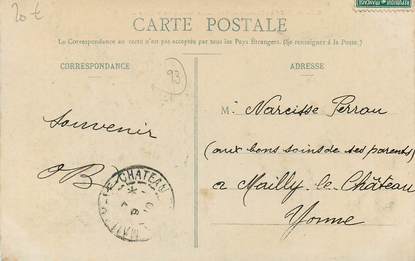 20 €
CARTE POSTALE
La Correspondance au recto n'est pas acceptée par tous les Pays Étrangers. (Se renseigner à la Poste.)
CORRESPONDANCE
ADRESSE
93
Souvenir
OB
M. Narcisse Perrau
(aux bons soins de ses parents)
a Mailly-le-Château
Yonne
LE CHATEAU